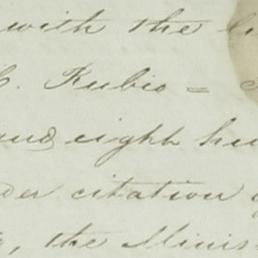 with the
C. Rubio =
and eight hu
der citation
, the Minis